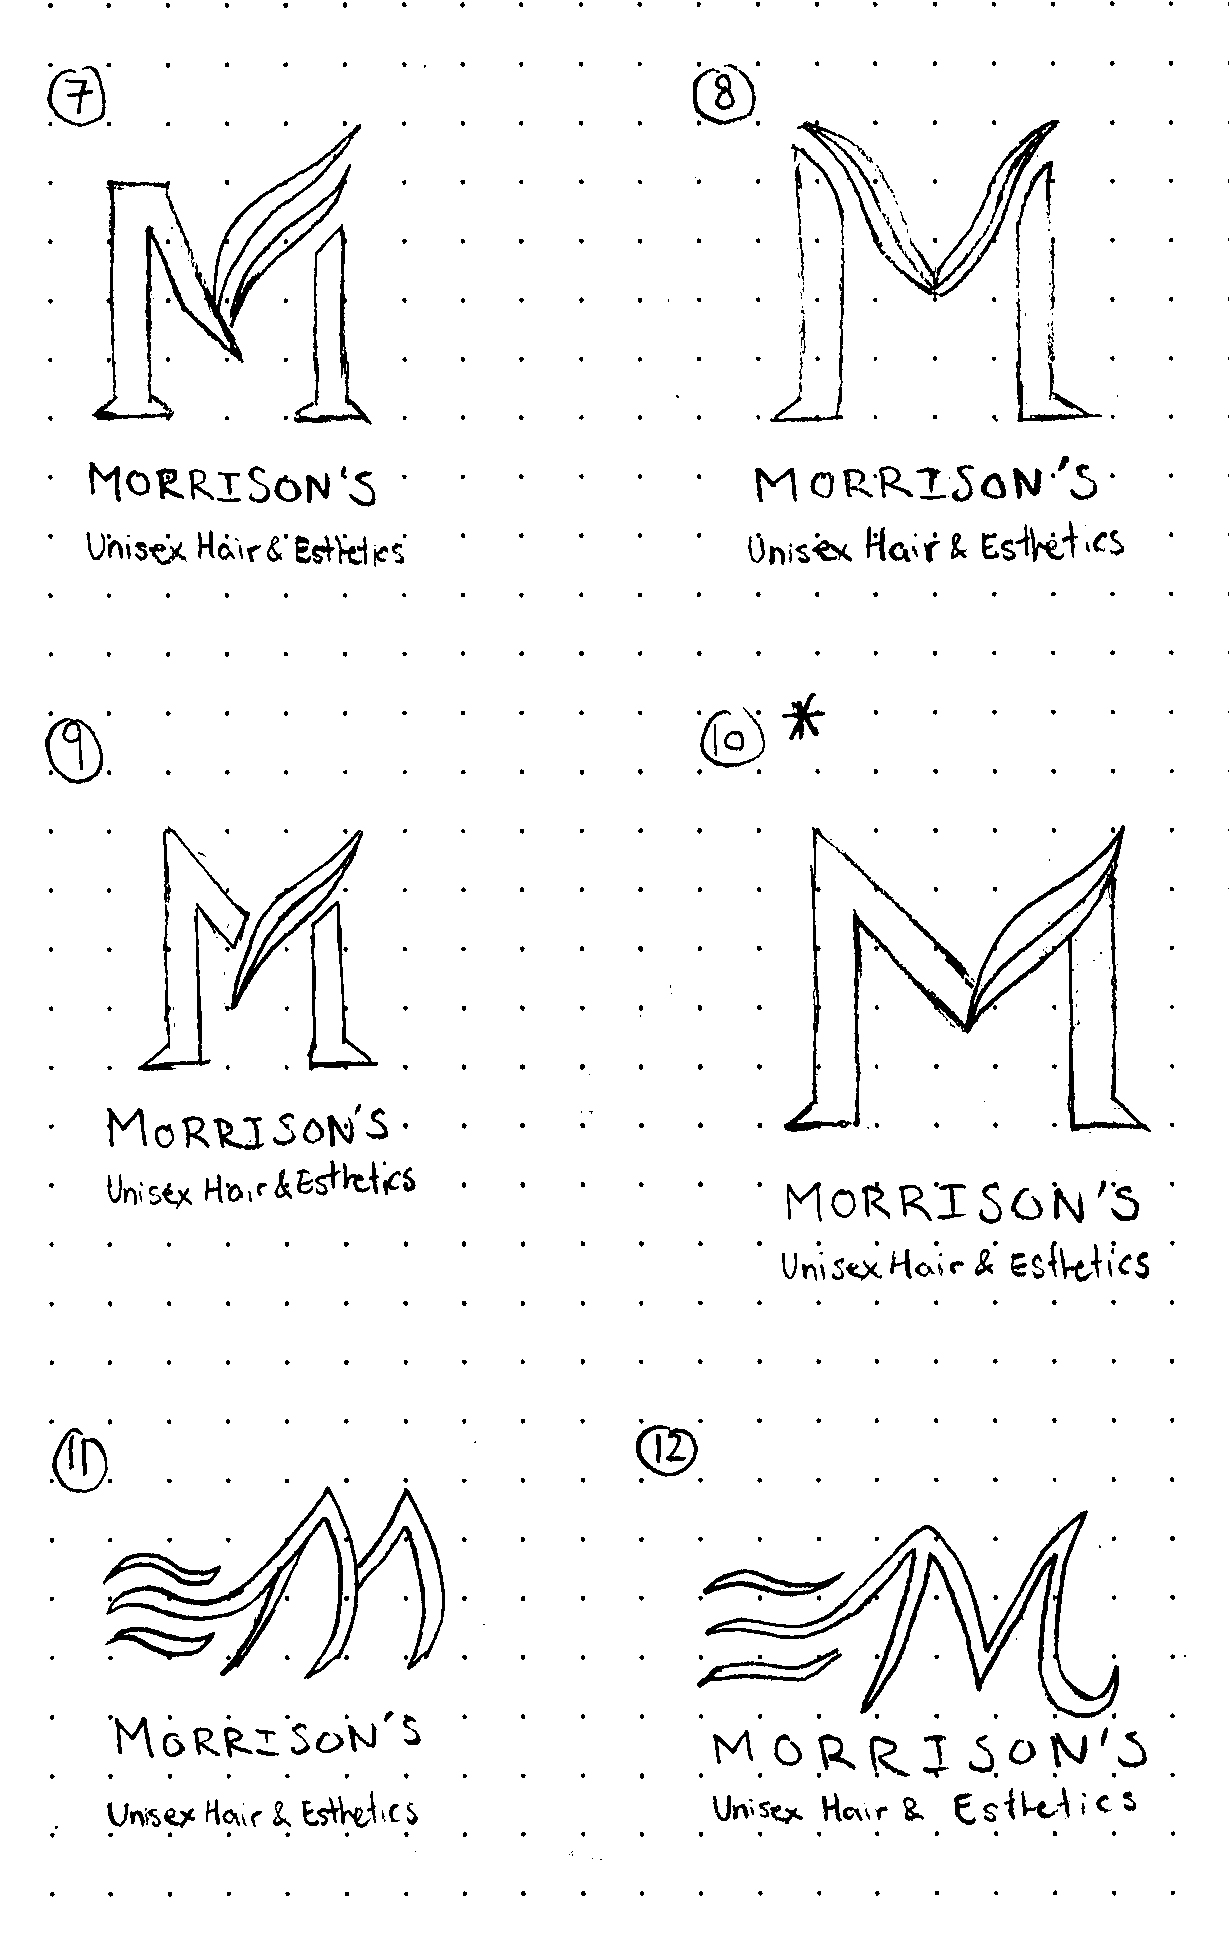 7
M
MORRISON'S
Unisex Hair & Esthetics
8
M
MORRISON'S
Unisex Hair & Esthetics
9
M
MORRISON'S
Unisex Hair & Esthetics
10 *
M
MORRISON'S
Unisex Hair & Esthetics
11
M
MORRISON'S
Unisex Hair & Esthetics
12
M
MORRISON'S
Unisex Hair & Esthetics